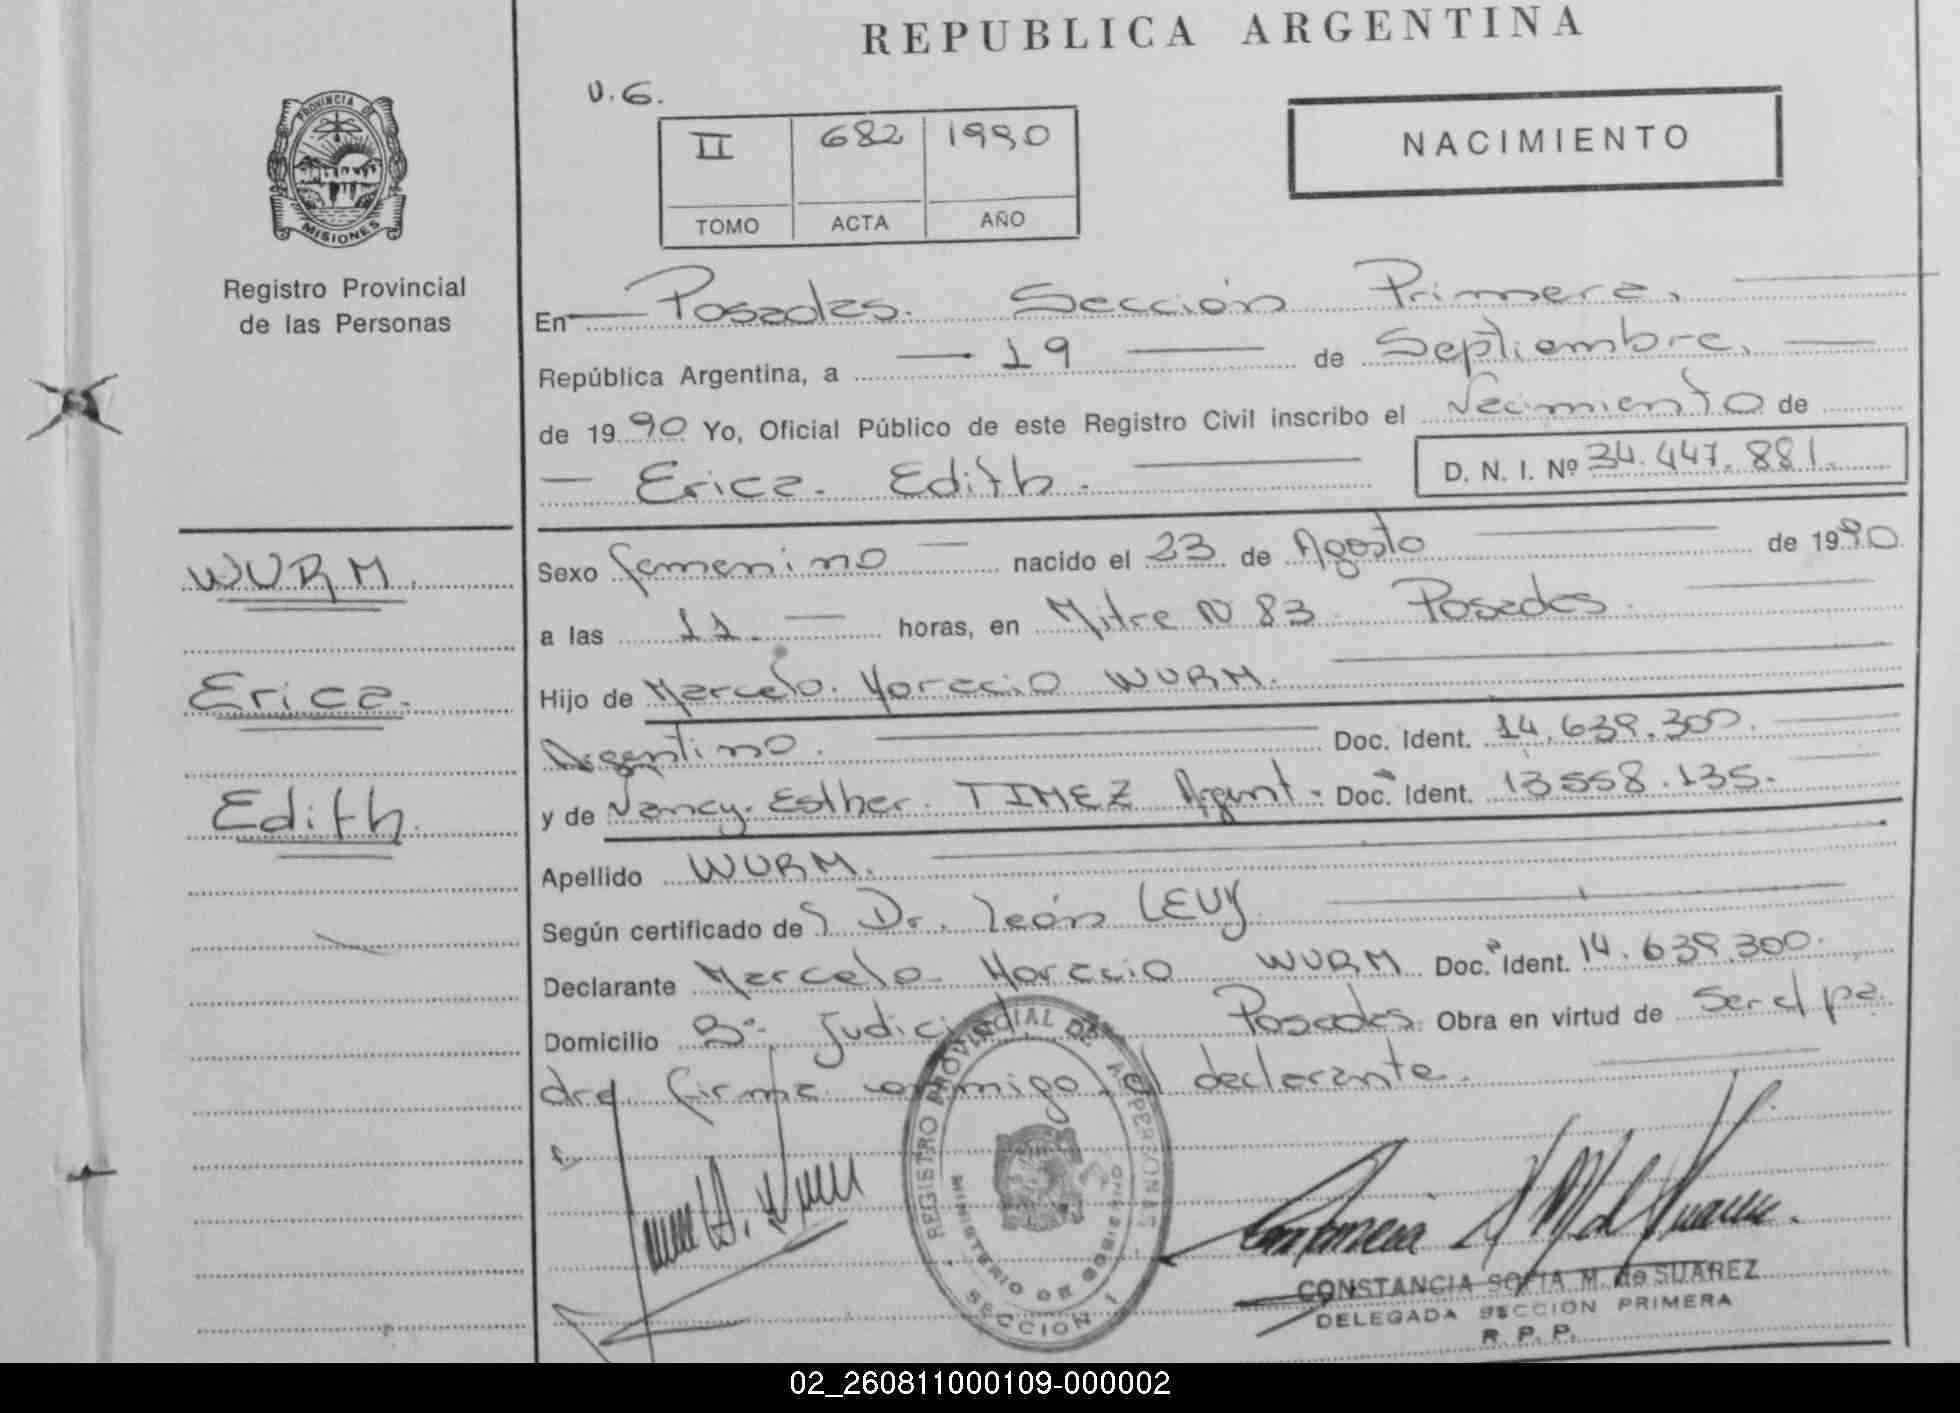 REPUBLICA ARGENTINA
U.G.
II 682 1990
TOMO ACTA AÑO
NACIMIENTO
PROVINCIA DE
MISIONES
Registro Provincial
de las Personas
En Posadas. Sección Primera.
República Argentina, a 19 de Septiembre.
de 1990 Yo, Oficial Público de este Registro Civil inscribo el Nacimiento de
Erica. Edith. D. N. I. Nº 34.447.881.
WURM.
Erica.
Edith.
Sexo femenino nacido el 23 de Agosto de 1990
a las 11. horas, en Mitre N 83. Posadas.
Hijo de Marcelo. Horacio WURM.
Argentino. Doc. Ident. 14.639.300.
y de Nancy. Esther. TIMEZ Argent. Doc. Ident. 13558.135.
Apellido WURM.
Según certificado de Dr. León LEVY
Declarante Marcelo Horacio WURM Doc. Ident. 14.639.300.
Domicilio Bº. Judicial Posadas. Obra en virtud de Ser el pa
dre. firma conmigo el declarante.
REGISTRO PROVINCIAL DE LAS PERSONAS
MINISTERIO DE GOBIERNO
SECCION 1
CONSTANCIA SOFIA M. de SUAREZ
DELEGADA SECCION PRIMERA
R. P. P.
02_260811000109-000002